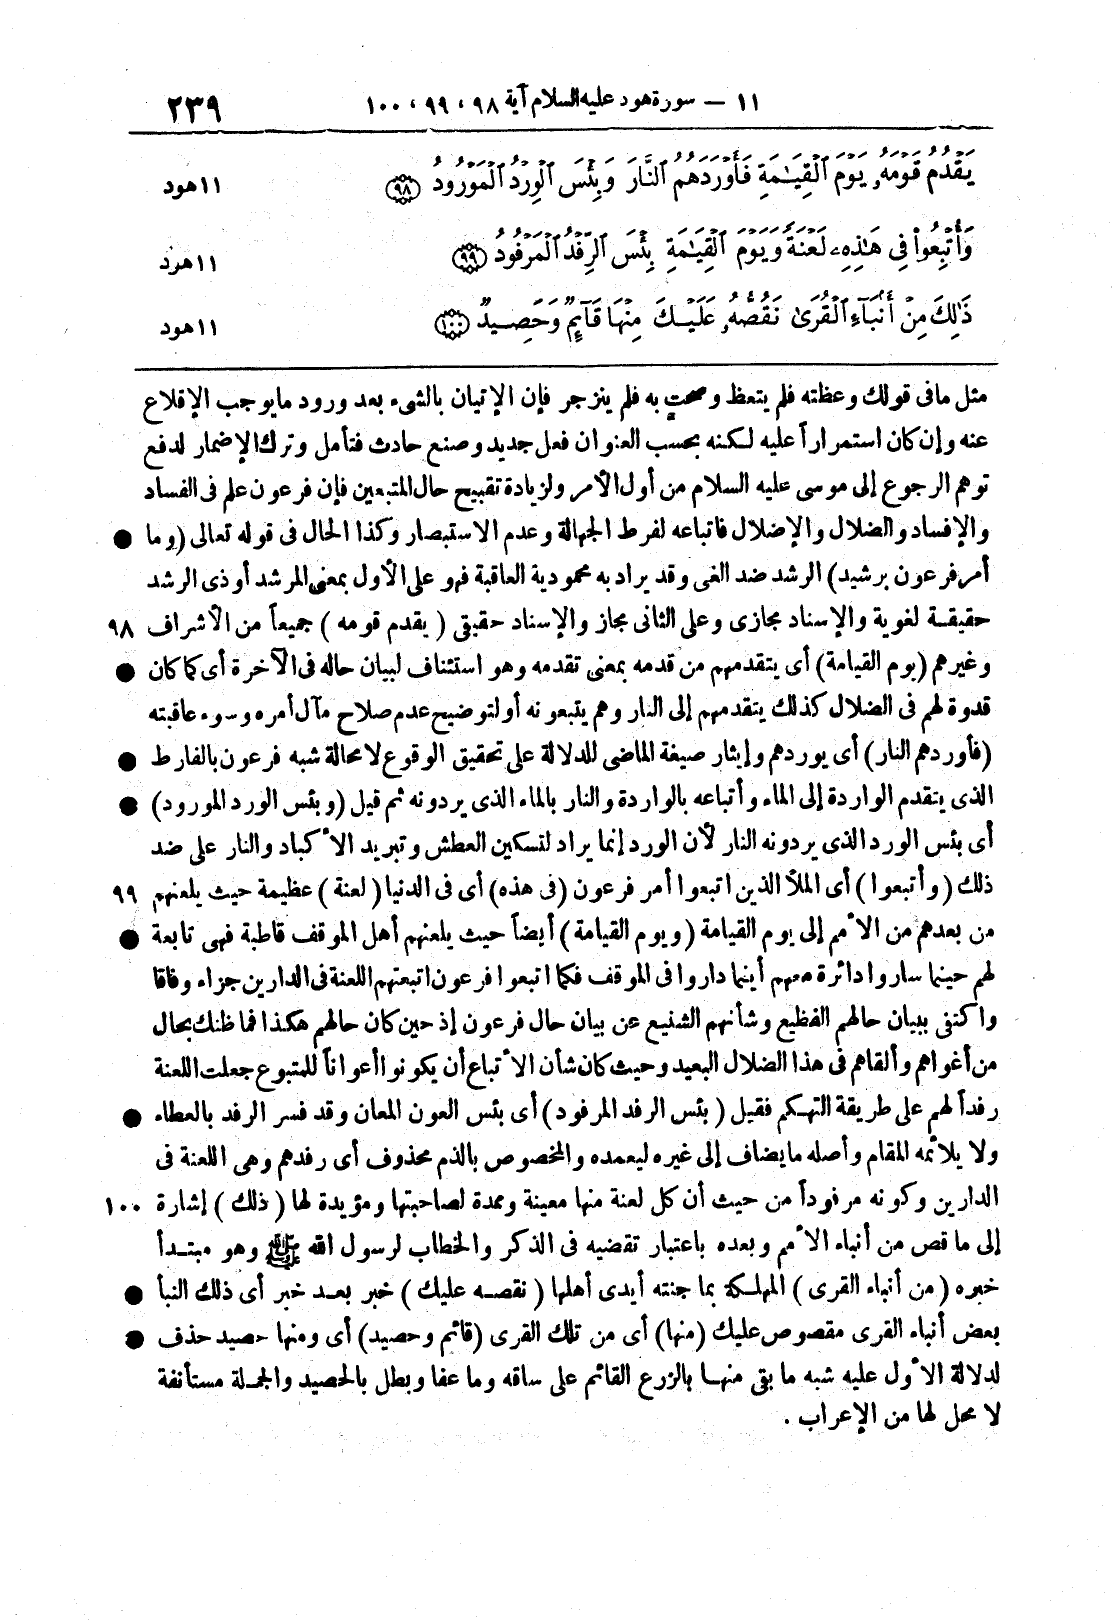 ١١ — سورة هود عليه السلام آية ٩٨ ، ٩٩ ، ١٠٠
٢٣٩
يَقْدُمُ قَوْمَهُۥ يَوْمَ ٱلْقِيَـٰمَةِ فَأَوْرَدَهُمُ ٱلنَّارَ وَبِئْسَ ٱلْوِرْدُ ٱلْمَوْرُودُ ﴿٩٨﴾ ١١ هود
وَأُتْبِعُوا۟ فِى هَـٰذِهِۦ لَعْنَةً وَيَوْمَ ٱلْقِيَـٰمَةِ بِئْسَ ٱلرِّفْدُ ٱلْمَرْفُودُ ﴿٩٩﴾ ١١ هود
ذَٰلِكَ مِنْ أَنۢبَآءِ ٱلْقُرَىٰ نَقُصُّهُۥ عَلَيْكَ مِنْهَا قَآئِمٌ وَحَصِيدٌ ﴿١٠٠﴾ ١١ هود
مثل مافى قولك وعظته فلم يتعظ وصحت به فلم ينزجر فإن الإتيان بالشىء بعد ورود مايوجب الإقلاع
عنه وإن كان استمراراً عليه لكنه بحسب العنوان فعل جديد وصنع حادث فتأمل وترك الإضمار لدفع
توهم الرجوع إلى موسى عليه السلام من أول الأمر ولزيادة تقبيح حال المتبعين فإن فرعون علم فى الفساد
والإفساد والضلال والإضلال فاتباعه لفرط الجهالة وعدم الاستبصار وكذا الحال فى قوله تعالى (وما ●
أمر فرعون برشيد) الرشد ضد الغى وقد يراد به محمودية العاقبة فهو على الأول بمعنى المرشد أو ذى الرشد
حقيقة لغوية والإسناد مجازى وعلى الثانى مجاز والإسناد حقيقى ( يقدم قومه ) جميعاً من الأشراف ٩٨
وغيرهم (يوم القيامة) أى يتقدمهم من قدمه بمعنى تقدمه وهو استئناف لبيان حاله فى الآخرة أى كما كان ●
قدوة لهم فى الضلال كذلك يتقدمهم إلى النار وهم يتبعونه أو لتوضيح عدم صلاح مآل أمره وسوء عاقبته
(فأوردهم النار) أى يوردهم وإيثار صيغة الماضى للدلالة على تحقيق الوقوع لا محالة شبه فرعون بالفارط ●
الذى يتقدم الواردة إلى الماء وأتباعه بالواردة والنار بالماء الذى يردونه ثم قيل (وبئس الورد المورود) ●
أى بئس الورد الذى يردونه النار لأن الورد إنما يراد لتسكين العطش وتبريد الأكباد والنار على ضد
ذلك ( وأتبعوا ) أى الملأ الذين اتبعوا أمر فرعون (فى هذه) أى فى الدنيا ( لعنة ) عظيمة حيث يلعنهم ٩٩
من بعدهم من الأمم إلى يوم القيامة (ويوم القيامة) أيضاً حيث يلعنهم أهل الموقف قاطبة فهى تابعة ●
لهم حيثما ساروا دائرة معهم أينما داروا فى الموقف فكما اتبعوا فرعون اتبعتهم اللعنة فى الدارين جزاء وفاقا
واكتفى ببيان حالهم الفظيع وشأنهم الشنيع عن بيان حال فرعون إذ حين كان حالهم هكذا فما ظنك بحال
من أغواهم وألقاهم فى هذا الضلال البعيد وحيث كان شأن الأتباع أن يكونوا أعواناً للمتبوع جعلت اللعنة
رفداً لهم على طريقة التهكم فقيل ( بئس الرفد المرفود) أى بئس العون المعان وقد فسر الرفد بالعطاء ●
ولا يلائمه المقام وأصله مايضاف إلى غيره ليعمده والمخصوص بالذم محذوف أى رفدهم وهى اللعنة فى
الدارين وكونه مرفوداً من حيث أن كل لعنة منها معينة وممدة لصاحبتها ومؤيدة لها ( ذلك ) إشارة ١٠٠
إلى ما قص من أنباء الأمم وبعده باعتبار تقضيه فى الذكر والخطاب لرسول الله ﷺ وهو مبتدأ
خبره ( من أنباء القرى ) المهلكة بما جنته أيدى أهلها ( نقصه عليك ) خبر بعد خبر أى ذلك النبأ ●
بعض أنباء القرى مقصوص عليك (منها) أى من تلك القرى (قائم وحصيد) أى ومنها حصيد حذف ●
لدلالة الأول عليه شبه ما بقى منها بالزرع القائم على ساقه وما عفا وبطل بالحصيد والجملة مستأنفة
لا محل لها من الإعراب .